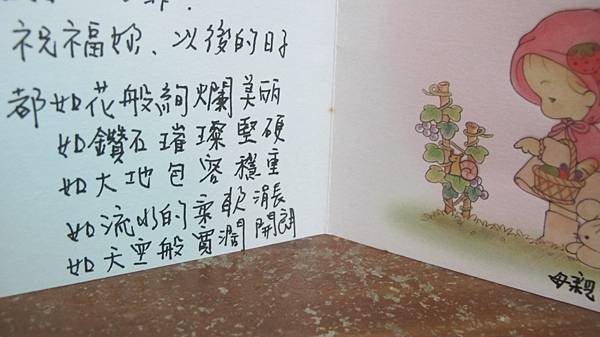 祝福妳、以後的日子
都如花般絢爛美丽
如鑽石璀璨堅硬
如大地包容穩重
如流水的柔軟涓長
如天空般寬濶開朗
母親